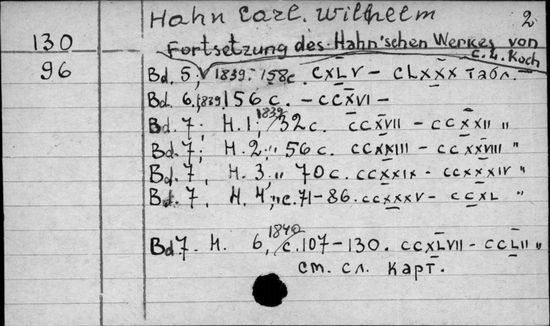 Hahn Carl. Wilhelm 2
130 Fortsetzung des Hahn'schen Werkes von
C. L. Koch
96 Bd. 5, 1839. 158c. CXLV – CLXXX табл.
Bd. 6, 1839, 156 c. – CCXVI –
Bd. 7, H. 1, 1839, 32 c. CCXVII – CCXXII "
Bd. 7, H. 2, " 56 c. CCXXIII – CCXXVIII "
Bd. 7, H. 3, " 70 c. CCXXIX – CCXXXIV "
Bd. 7, H. 4, " c. 71–86. CCXXXV – CCXL "
Bd 7. H. 6, 1840, c. 107–130. CCXLVII – CCLII "
см. сл. карт.